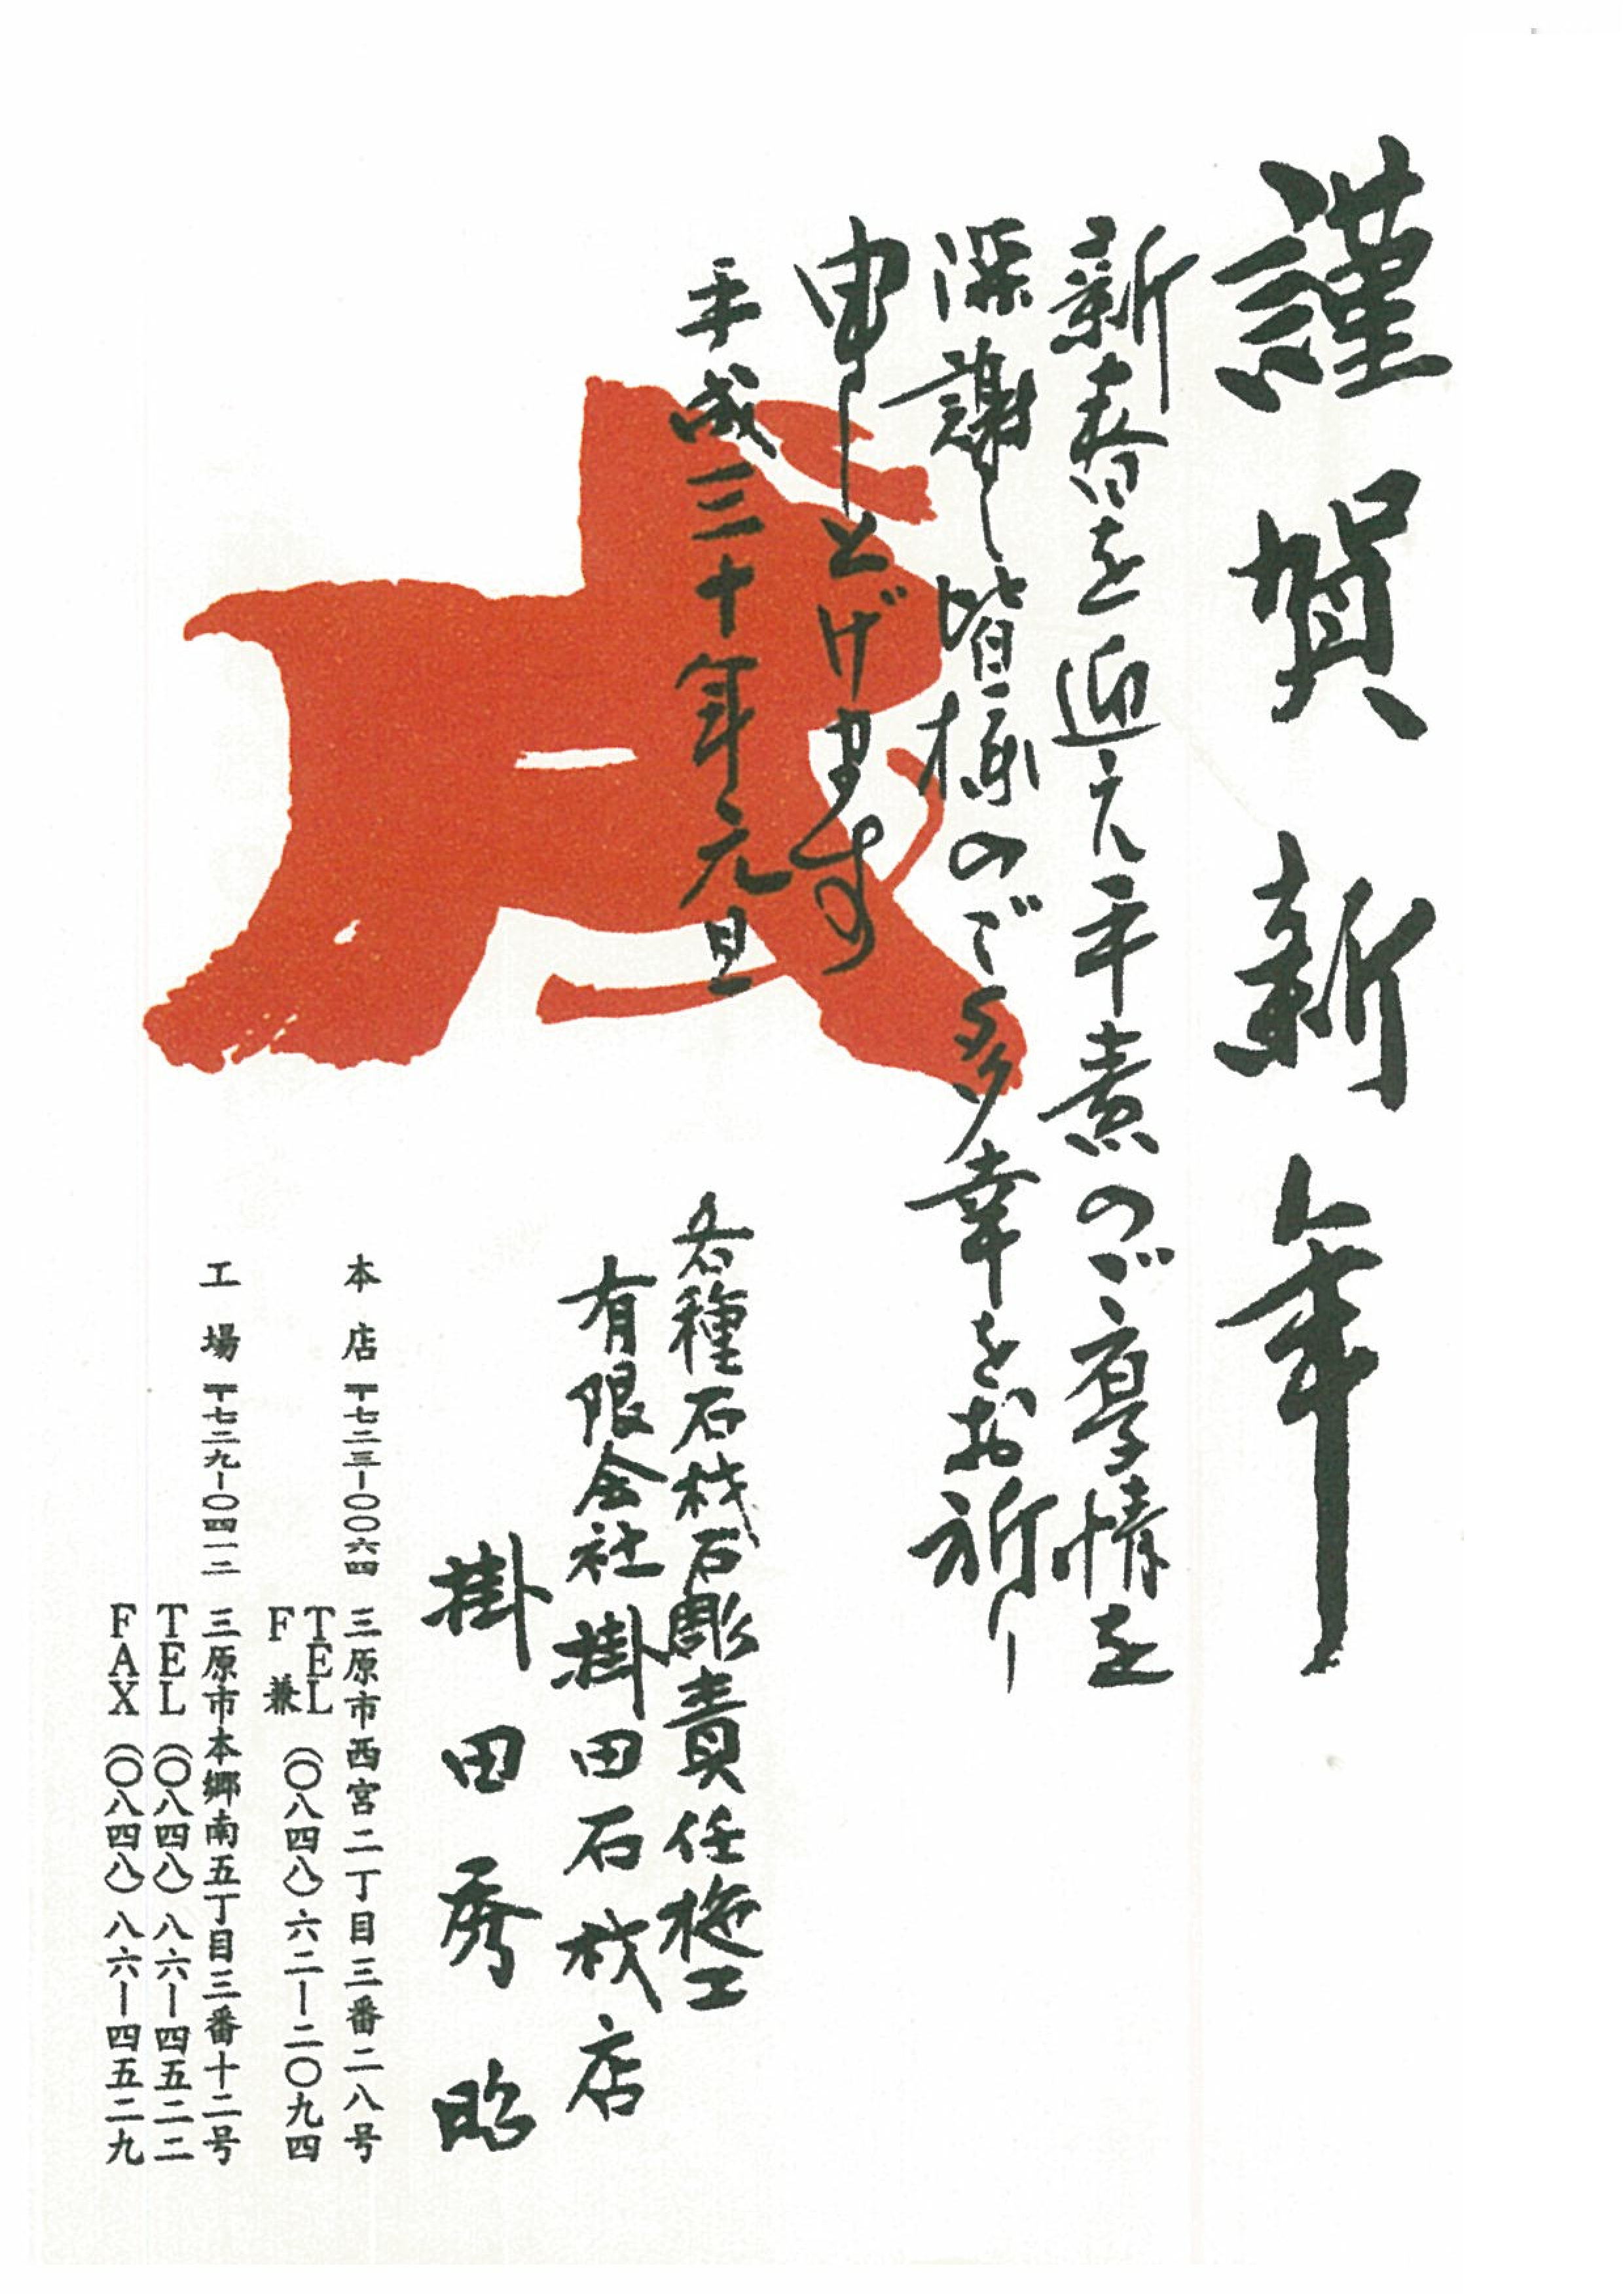 謹賀新年
新春を迎え平素のご厚情を
深謝し皆様のご多幸をお祈り
申し上げます
平成三十年元旦
各種石材石彫責任施工
有限会社掛田石材店
掛田秀昭
本店 〒七二三-〇〇六四 三原市西宮二丁目三番二八号
TEL
F兼 (〇八四八)六二-二〇九四
工場 〒七二九-〇四一二 三原市本郷南五丁目三番十二号
TEL (〇八四八)八六-四五二二
FAX (〇八四八)八六-四五二九